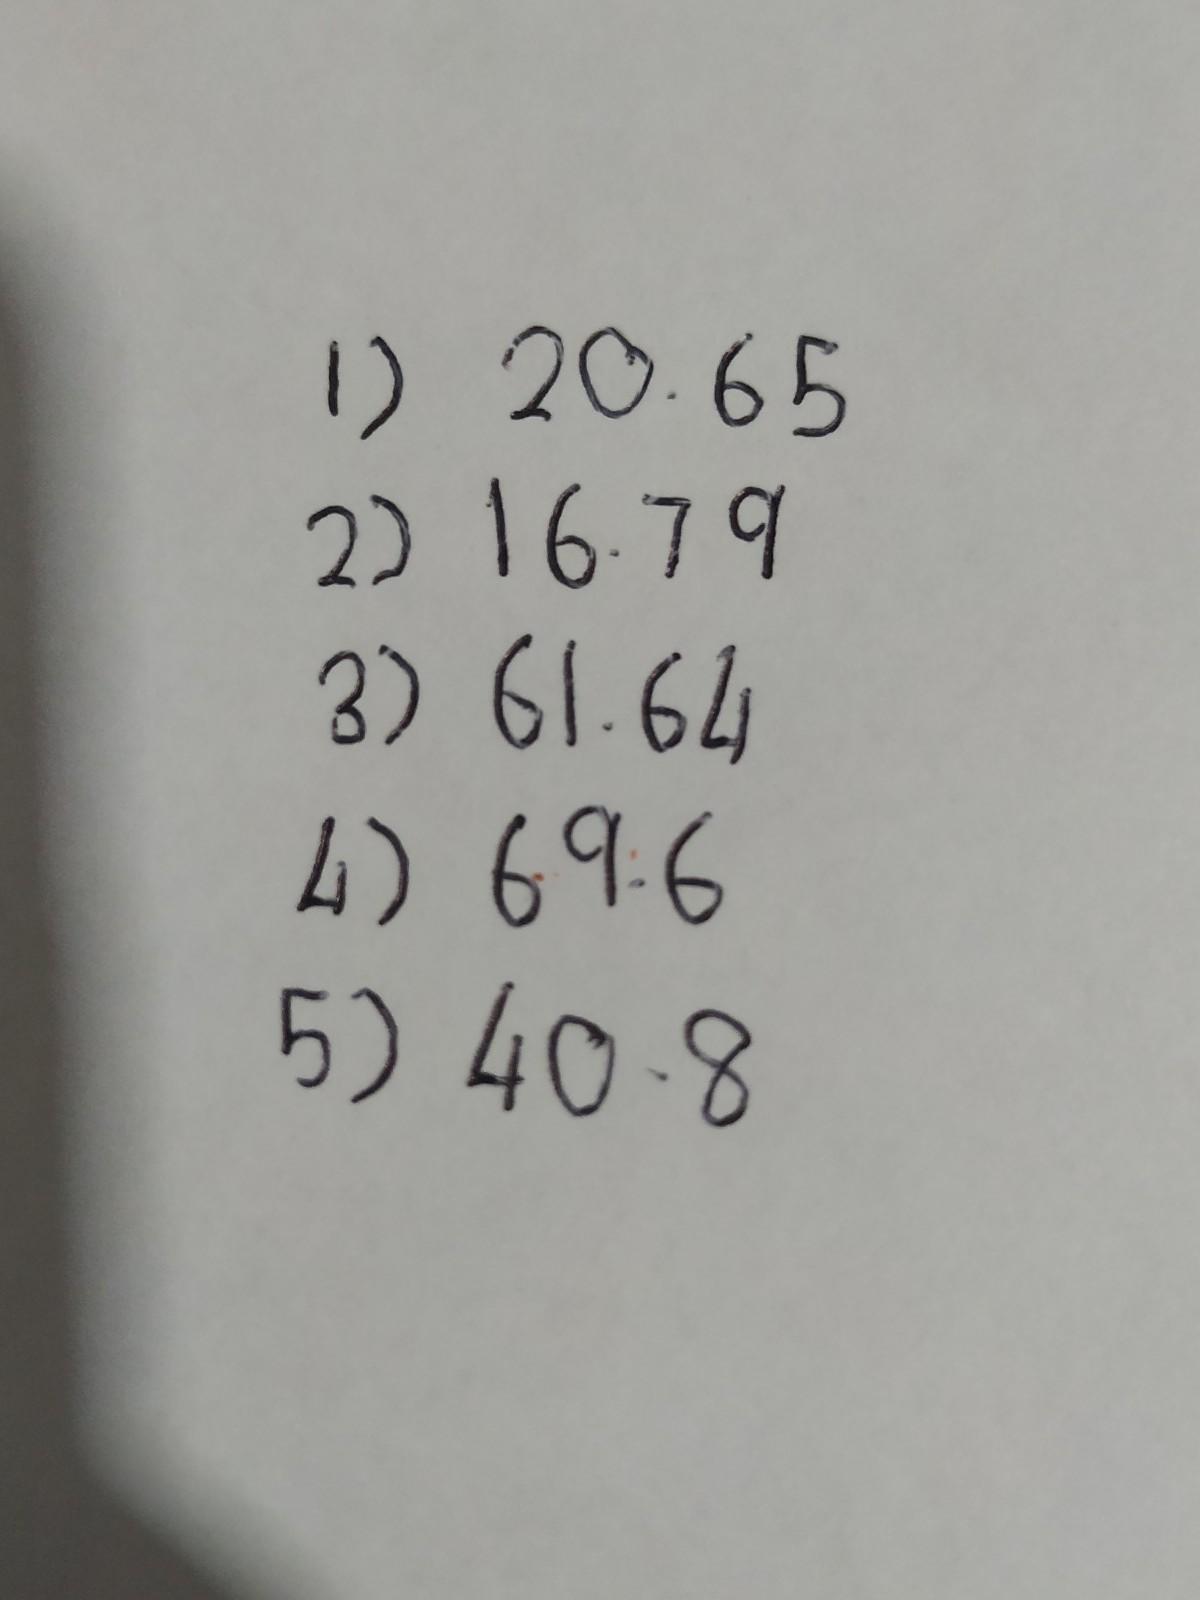 1) 20.65
2) 16.79
3) 61.64
4) 69.6
5) 40.8